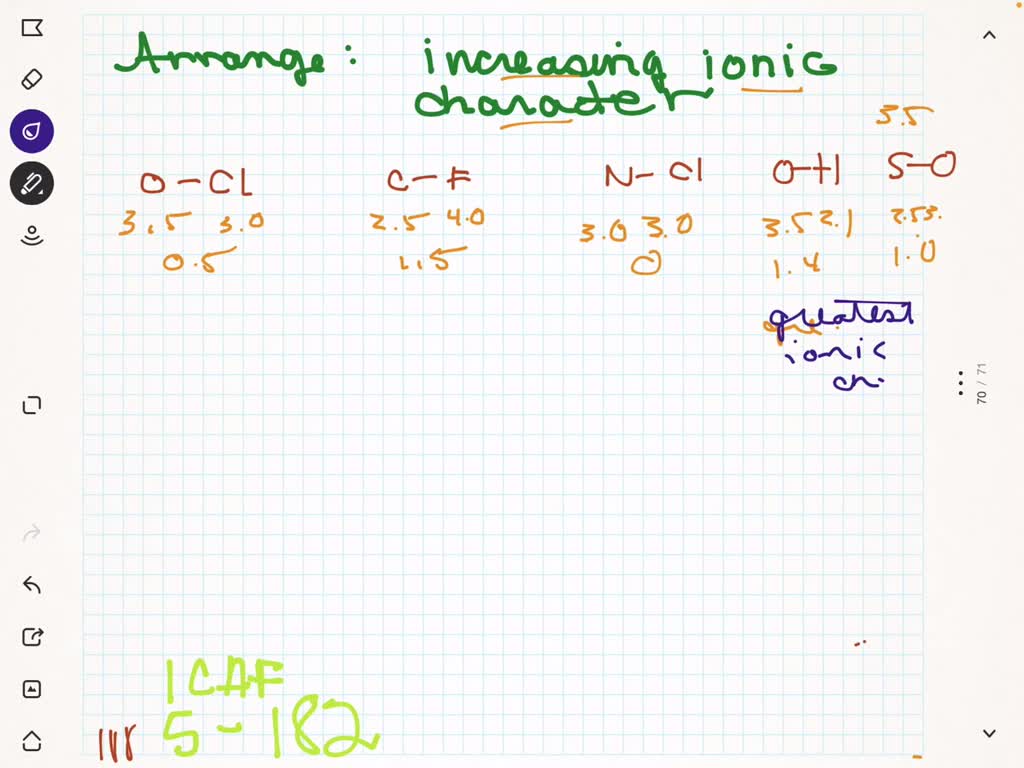 Arrange: increasing ionic
character
3.5
O-Cl C-F N-Cl O-H S-O
3.5 3.0 2.5 4.0 3.0 3.0 3.5 2.1 2.5 3.
0.5 1.5 0 1.4 1.0
greatest
ionic
ch.
70 / 71
1CAF
5-182